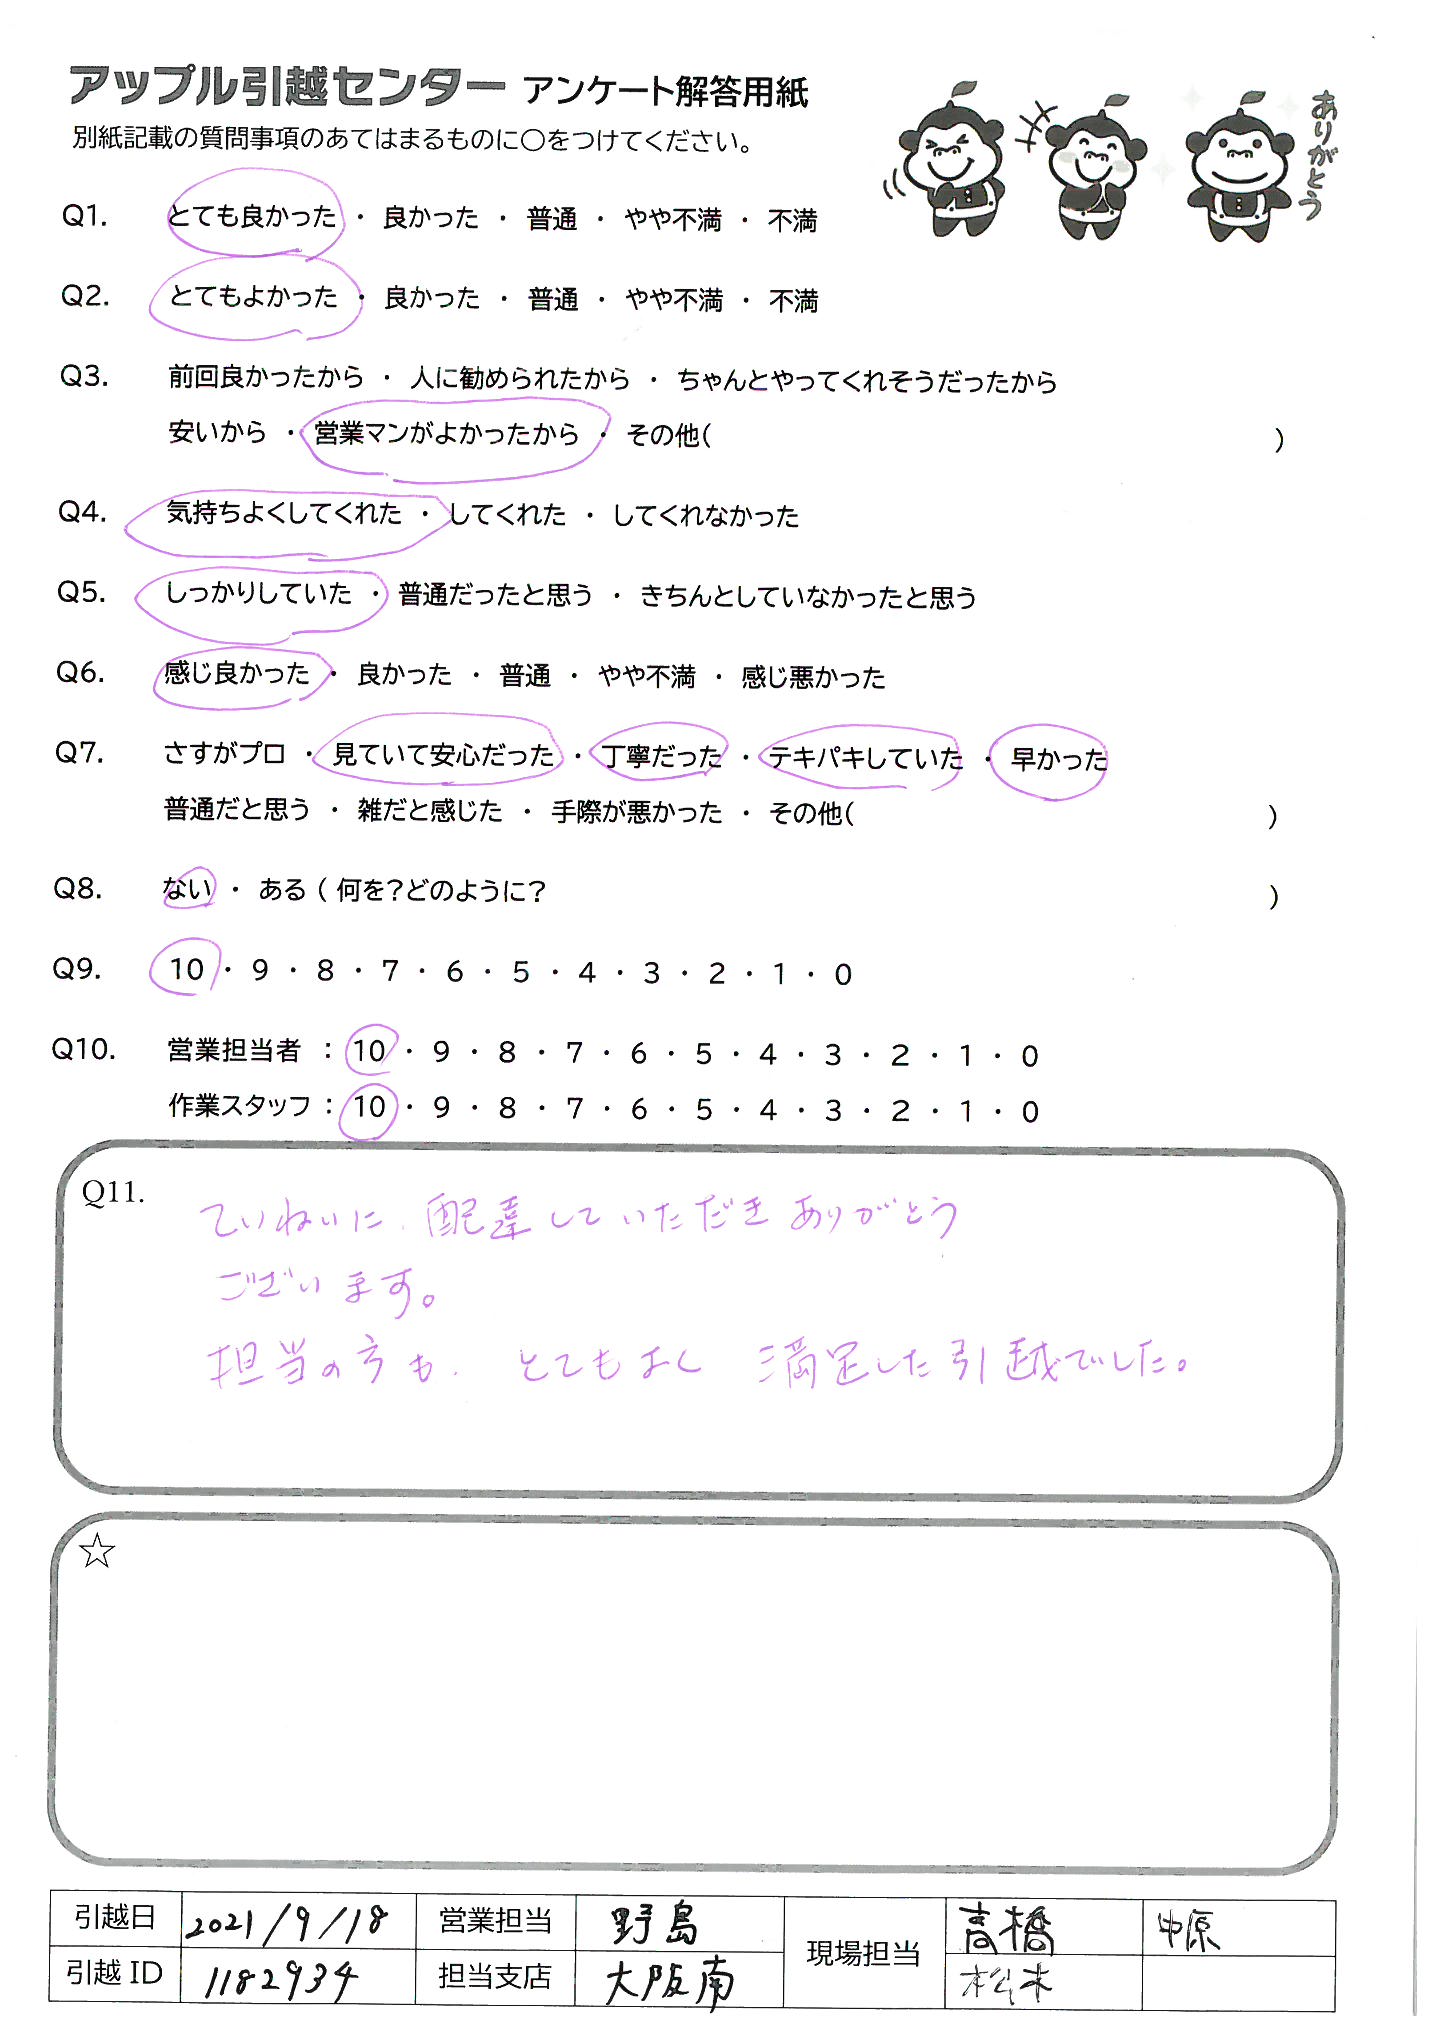 アップル引越センター アンケート解答用紙
別紙記載の質問事項のあてはまるものに〇をつけてください。
ありがとう
Q1. とても良かった ・ 良かった ・ 普通 ・ やや不満 ・ 不満
Q2. とてもよかった ・ 良かった ・ 普通 ・ やや不満 ・ 不満
Q3. 前回良かったから ・ 人に勧められたから ・ ちゃんとやってくれそうだったから
安いから ・ 営業マンがよかったから ・ その他( )
Q4. 気持ちよくしてくれた ・ してくれた ・ してくれなかった
Q5. しっかりしていた ・ 普通だったと思う ・ きちんとしていなかったと思う
Q6. 感じ良かった ・ 良かった ・ 普通 ・ やや不満 ・ 感じ悪かった
Q7. さすがプロ ・ 見ていて安心だった ・ 丁寧だった ・ テキパキしていた ・ 早かった
普通だと思う ・ 雑だと感じた ・ 手際が悪かった ・ その他( )
Q8. ない ・ ある ( 何を?どのように? )
Q9. 10 ・ 9 ・ 8 ・ 7 ・ 6 ・ 5 ・ 4 ・ 3 ・ 2 ・ 1 ・ 0
Q10. 営業担当者 : 10 ・ 9 ・ 8 ・ 7 ・ 6 ・ 5 ・ 4 ・ 3 ・ 2 ・ 1 ・ 0
作業スタッフ : 10 ・ 9 ・ 8 ・ 7 ・ 6 ・ 5 ・ 4 ・ 3 ・ 2 ・ 1 ・ 0
Q11. ていねいに、配達していただきありがとう
ございます。
担当の方も、とてもよく 満足した引越でした。
☆
引越日 2021/9/18 営業担当 野島 現場担当 髙橋 中原
引越 ID 1182934 担当支店 大阪南 松本